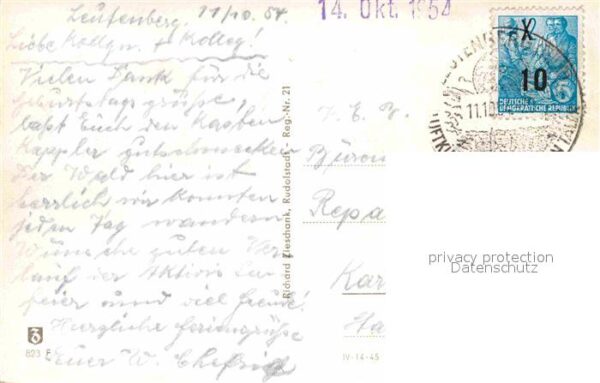 Leutenberg, 11/10.54.
Liebe Kollgn. + Kolleg!
Vielen Dank für die
Geburtstagsgrüße,
laßt Euch den Kasten
Kappler gutschmecken
Der Wald hier ist
herrlich wir konnten
jeden Tag wandern
Wünsche guten Ver
lauf der
feier und viel Freude!
Herzliche Feriengrüße
Euer W.
823 F
Richard Zieschank, Rudolstadt - Reg.-Nr. 21
IV-14-45
14. Okt. 1954
X
10
DEUTSCHE
DEMOKRATISCHE REPUBLIK
5
LEUTENBERG
11.10
V.E.B.
Büro
Repa
Kar
privacy protection
Datenschutz